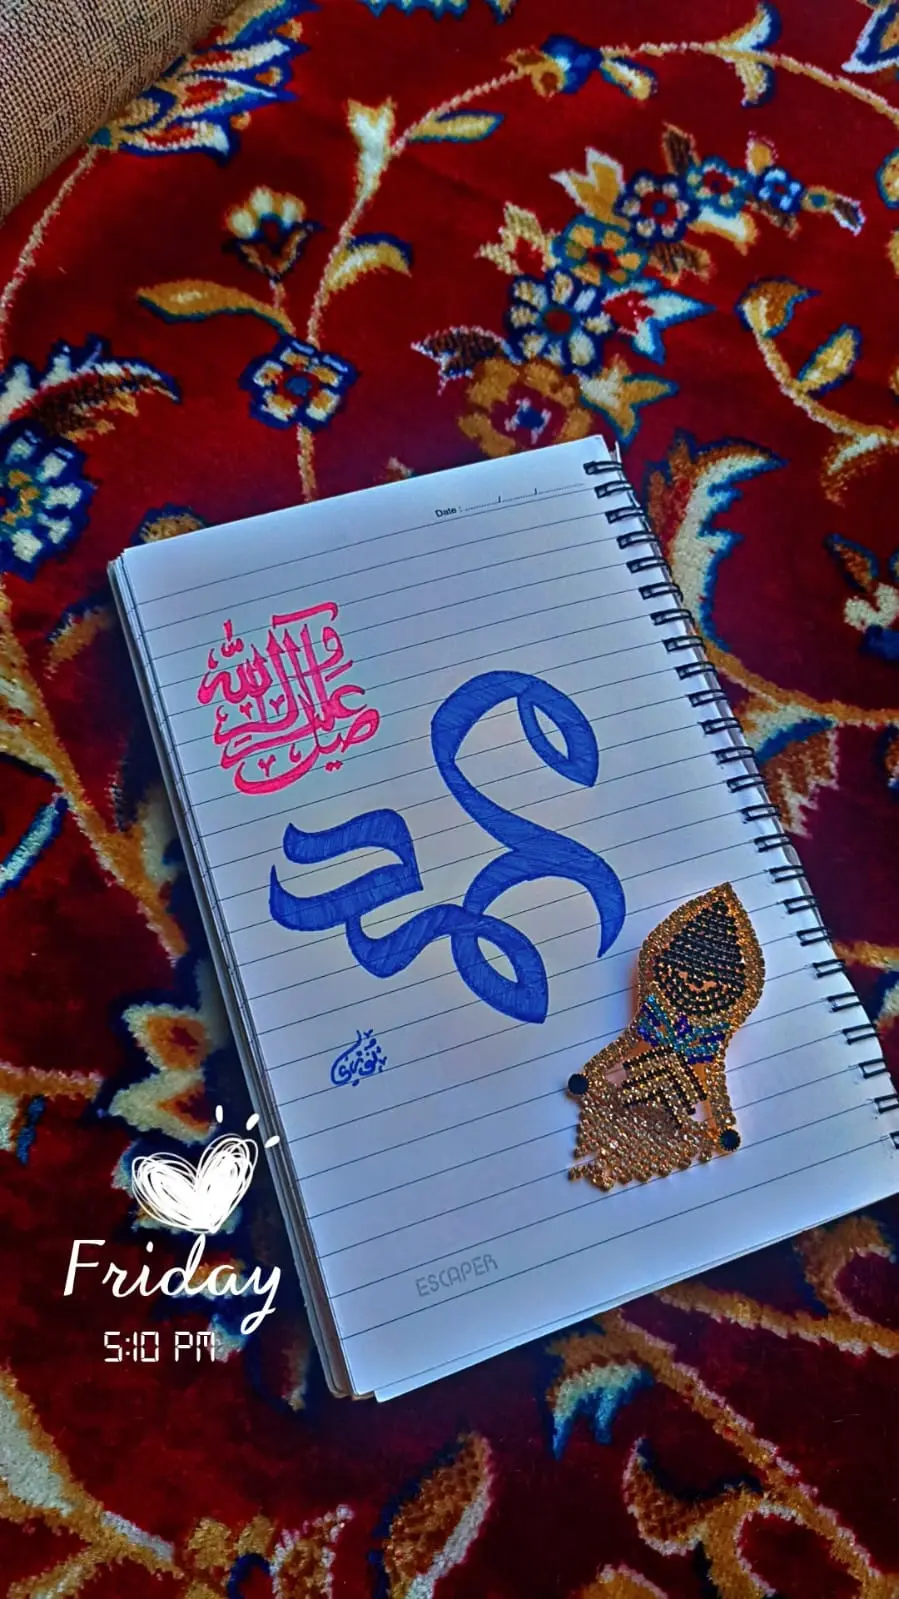 Date : ........../........../..........
صلى الله عليه وآله
محمد
ESCAPER
Friday
5:10 PM